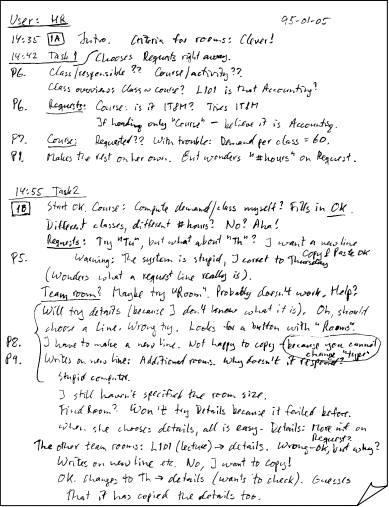 User: HR 95-01-05
14:35 1A Intro. Criteria for rooms: Clever!
14:42 Task 1 Chooses Requests right away.
P6. Class/responsible?? Course/activity??.
Class overviews Class ~ course? L101 is that Accounting?
P6. Requests: Course: is it IT8M? Tries IT8M
If heading only "Course" – believe it is Accounting.
P7. Course: Requested?? With trouble: Demand per class = 60.
P1. Makes the rest on her own. But wonders "#hours" on Request.
14:55 Task2
1B Start OK. Course: Compute demand/class myself? Fills in OK.
Different classes, different #hours? No? Aha!
Requests: Try "Tu", but what about "Th"? I want a new line
Copy & Paste OK
P5. Warning: The system is stupid, I correct to Thursday
(Wonders what a request line really is).
Team room? Maybe try "Room". Probably doesn't work. Help?
Will try details (because I don't know what it is). Oh, should
choose a line. Wrong try. Looks for a button with "Rooms".
P8. I have to make a new line. Not happy to copy (because you cannot
change "type")
P9. Writes on new line: Additional rooms. Why doesn't it respond?
Stupid computer.
I still haven't specified the room size.
Find Room? Won't try Details because it failed before.
When she chooses details, all is easy. Details: More not on
Request?
The other team rooms: L101 (lecture) → details. Wrong – OK, but why?
Writes on new line etc. No, I want to copy!
OK. Changes to Th → details (wants to check). Guesses
that it has copied the details too.